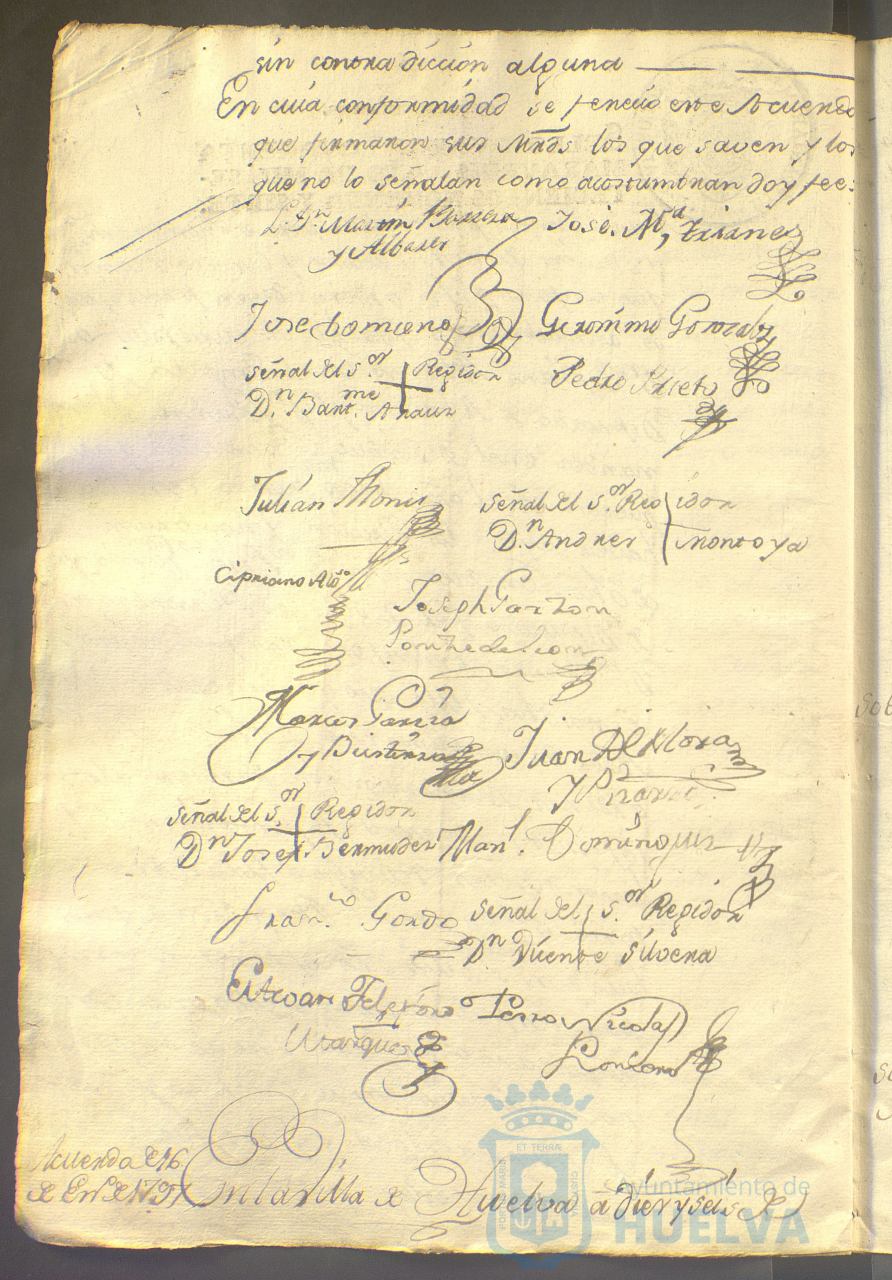 sin contradiccion alguna
En cuia conformidad se fenecio este Acuerdo
que firmaron sus Mrds. los que saven y los
que no lo señalan como acostumbran doy fee:
L. Dn. Martin Barrera
y Albarer
José M.a Trianes
Jose
Geronimo Gonzalez
señal del s.or Regidor
Dn. Bartme. Arauz
Pedro Prieto
Julián
señal del s.or Regidor
Dn. Andres Montoya
Cipriano Alo.so
Joseph Garzon
Ponze de Leon
Marcos Garcia
y
Juan de Mora
y
señal del s.or Regidor
Dn Josef Bermudez
Manl. Dominguez
Fran.co Gordo
señal del s.or Regidor
Dn Vicente Silvera
Estevan
Marquez
Pedro Nicolas
Acuerdo de 16
de En.o de 1797
En la Villa de Huelva a diez y seis de
ET TERRAE
Ayuntamiento de
HUELVA